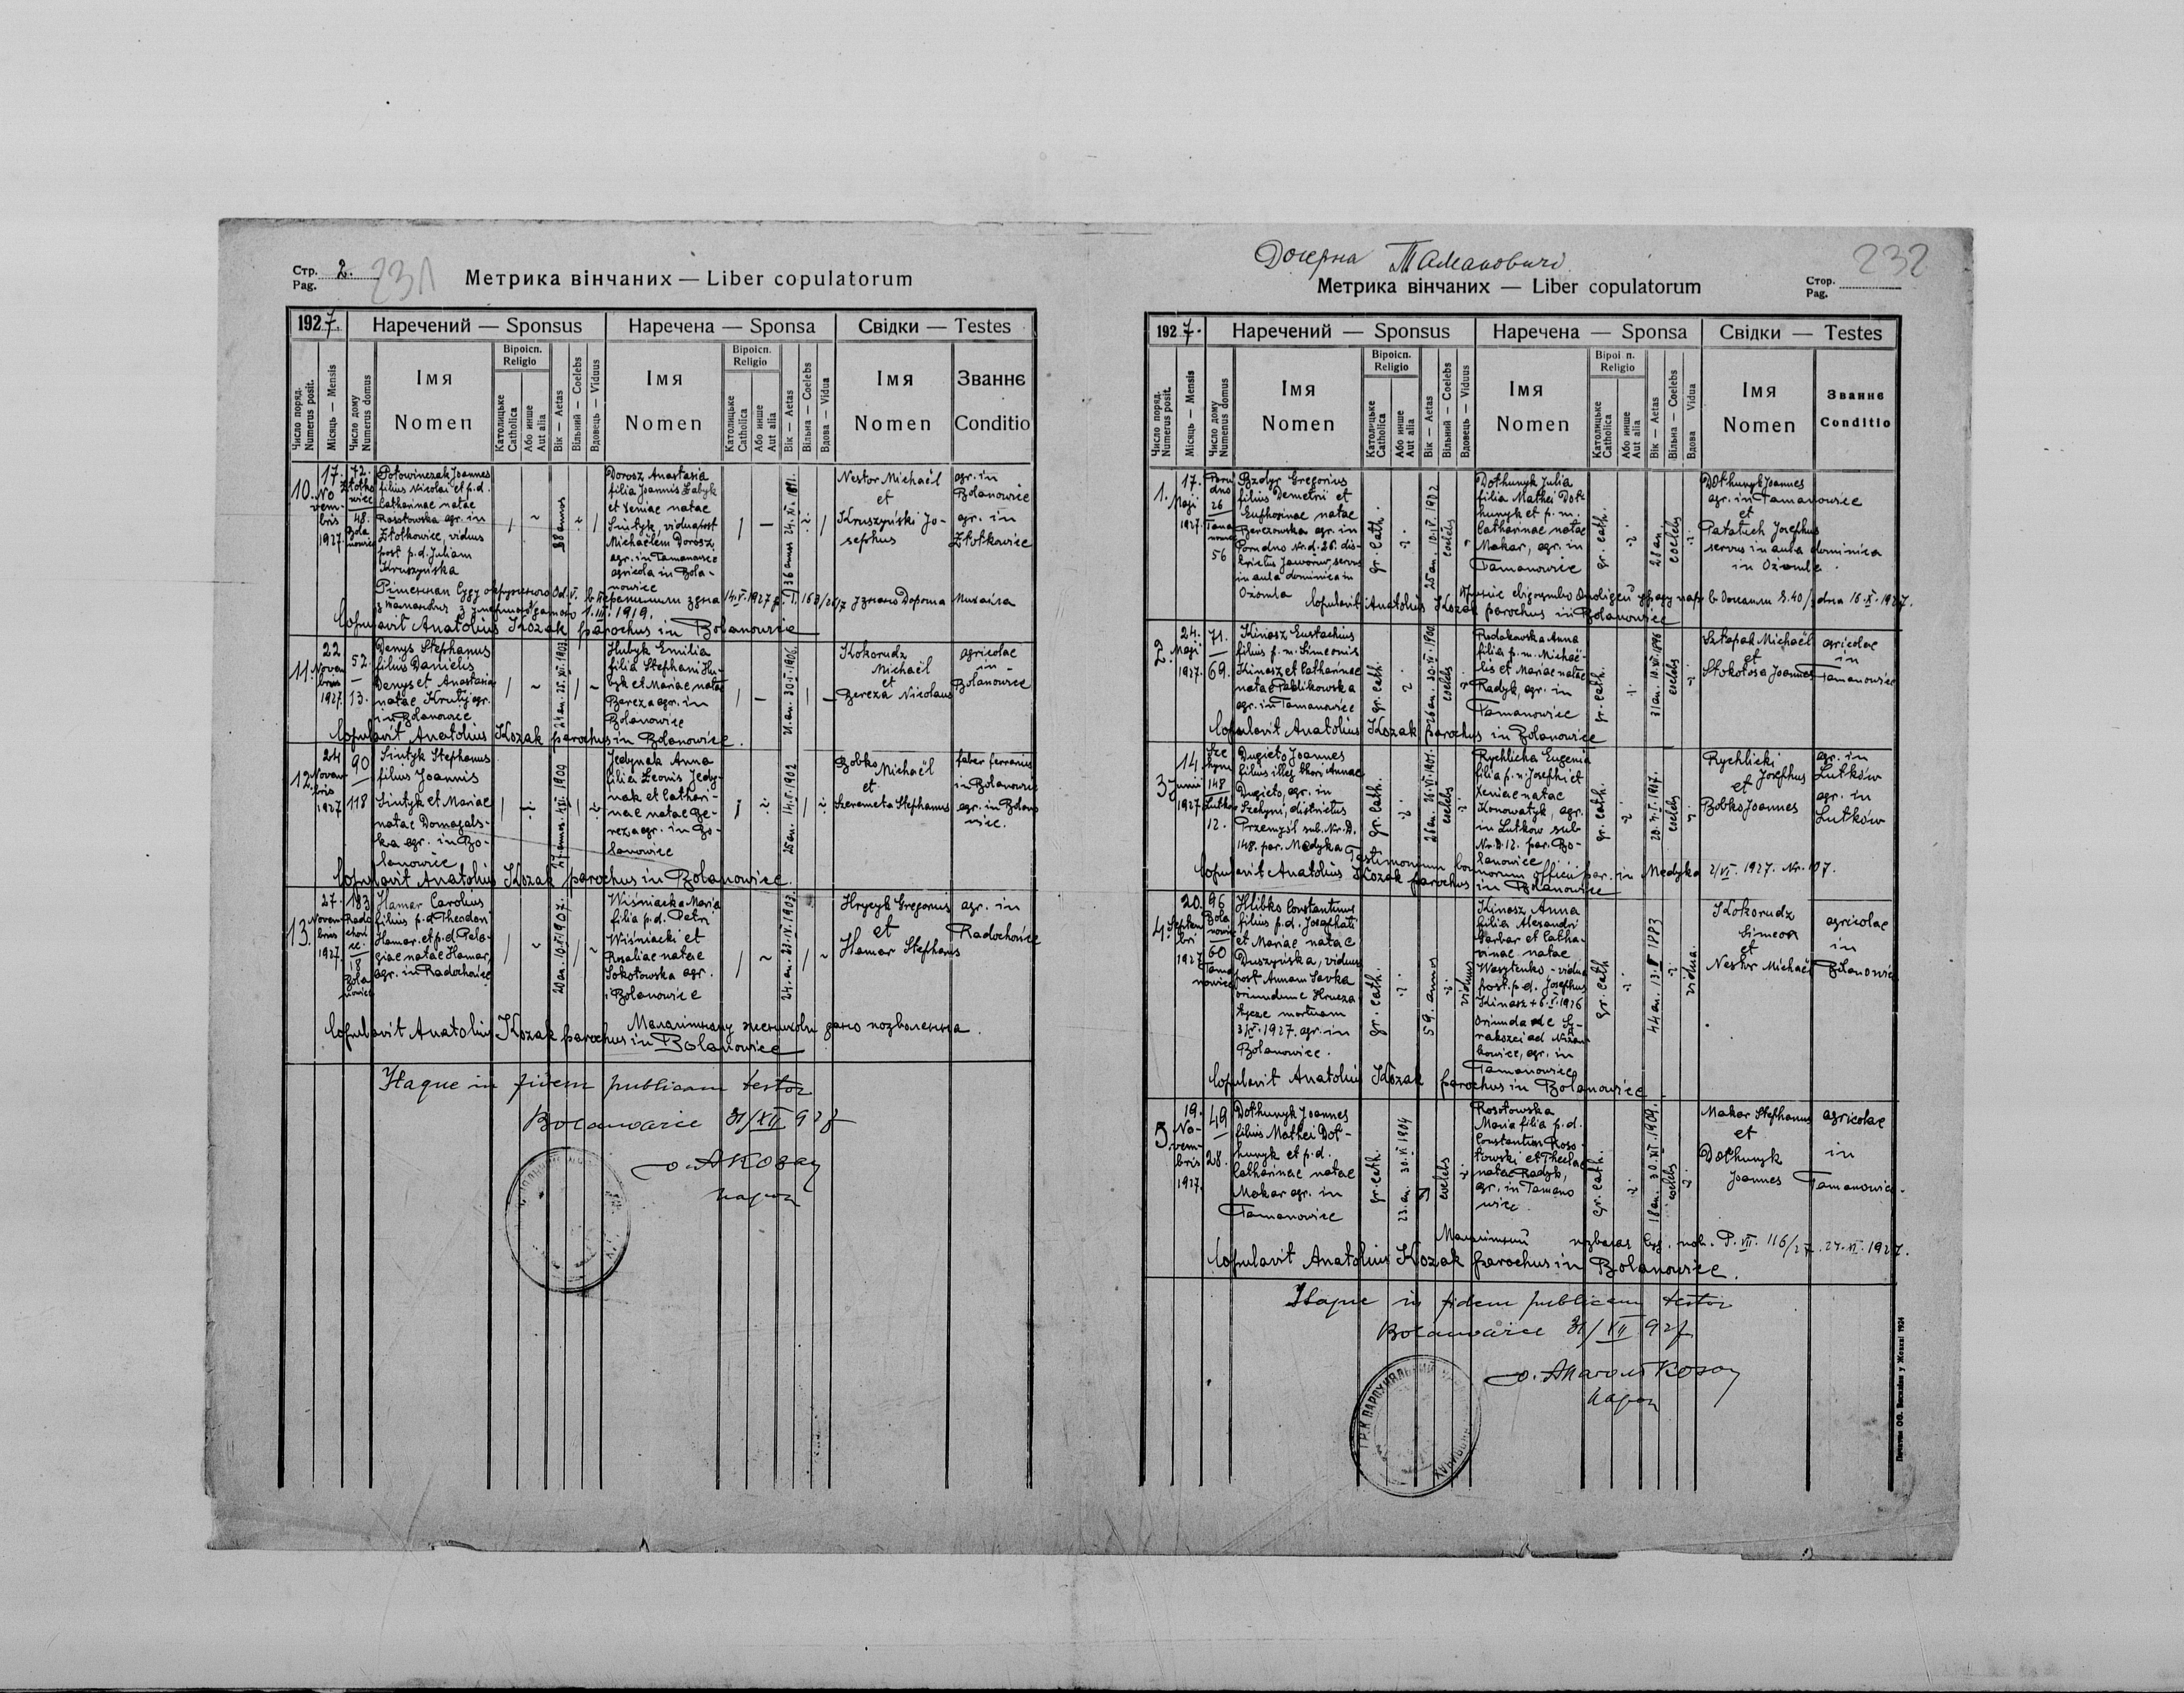 Стр. 2.
Pag.
231
Метрика вінчаних — Liber copulatorum
1927.
Наречений — Sponsus
Наречена — Sponsa
Свідки — Testes
Число поряд.
Numerus posit.
Місяць — Mensis
Число дому
Numerus domus
Імя
Nomen
Віроісп.
Religio
Католицьке
Catholica
Або инше
Aut alia
Вік — Aetas
Вільний — Coelebs
Вдовець — Viduus
Імя
Nomen
Віроісп.
Religio
Католицьке
Catholica
Або инше
Aut alia
Вік — Aetas
Вільна — Coelebs
Вдова — Vidua
Імя
Nomen
Званнє
Conditio
10.
17.
No
vem-
bris
1927.
72.
Złotko
wice
48.
Bola
nowice
Potowinczak Joannes
filius Nicolai et p.d.
Catharinae natae
Rosotowska agr. in
Złotkowice, viduus
post p.d. Juliam
Kruszyńska
38 annos
Dorosz Anastasia
filia Joannis Babyk
et Xeniae natae
Sintyk, vidua post
Michaëlem Dorosz
agr. in Tamanowice
agricola in Bola-
nowice
36 annos 24. XI. 1891.
Nestor Michaël
et
Kruszyński Jo-
sephus
agr. in
Bolanowice
agr. in
Złotkowice
Рішенням Суду окружного Od. V. в Перемишли з дня 14.V.1927 узнано Дороша Михайла
з Тамановичі з умерлого 1.III.1919.
Copulavit Anatolius Kozak parochus in Bolanowice
11.
22
Novem
bris
1927.
52.
13.
Denys Stephanus
filius Danielis
Denys et Anastasia
natae Krutyj agr.
in Bolanowice
24 an. 22. XII. 1903.
Hubyk Emilia
filia Stephani Hu-
byk et Mariae natae
Bereza agr. in
Bolanowice
21. an. 30. I. 1906.
Kokorudz
Michaël
et
Bereza Nicolaus
agricolae
in
Bolanowice
Copulavit Anatolius Kozak parochus in Bolanowice.
12.
24
Novem
bris
1927
90
118
Sintyk Stephanus
filius Joannis
Sintyk et Mariae
natae Domagals-
ka agr. in Bo-
lanowice
27 annos. 4. VI. 1900
Jedynak Anna
filia Leonis Jedy-
nak et Cathari-
nae natae Be-
reza agr. in Bo-
lanowice
25 an. 14. V. 1902
Bobko
Michaël
et
Szeremeta Stephanus
faber ferrarius
in Bolanowice
agr. in Bolano
wice.
Copulavit Anatolius Kozak parochus in Bolanowice.
13.
27.
Novem
bris
1927.
183
Rado
chon
ce
18
Bola
nowice
Hamar Carolus
filius p.d. Theodori
Hamar. et p.d. Pela-
giae natae Hamar,
agr. in Radochońce
20 an. 10. XI. 1907.
Wiśniacka Maria
filia p.d. Petri
Wiśniacki et
Rosaliae natae
Sokotowska agr.
i Bolanowice
24. an. 22. IV. 1903.
Hrycyk Gregorius
et
Hamar Stephanus
agr. in
Radochońce
Малолітному женихови дано позволення.
Copulavit Anatolius Kozak parochus in Bolanowice
Itaque in fidem publicam testor
Bolanowice 31/XII 927
о. А Козак
парох
Дочерна Тамановичі
232
Метрика вінчаних — Liber copulatorum
Стор.
Pag.
1927.
Наречений — Sponsus
Наречена — Sponsa
Свідки — Testes
Число поряд.
Numerus posit.
Місяць — Mensis
Число дому
Numerus domus
Імя
Nomen
Віроісп.
Religio
Католицьке
Catholica
Або инше
Aut alia
Вік — Aetas
Вільний — Coelebs
Вдовець — Viduus
Імя
Nomen
Віроі п.
Religio
Католицьке
Catholica
Або инше
Aut alia
Вік — Aetas
Вільна — Coelebs
Вдова Vidua
Імя
Nomen
Званнє
Conditio
1.
17.
Maji
1927.
Poru
dno
26
Tama
nowice
56
Bzdyr Gregorius
filius Demetri et
Euphrosinae natae
Berezowska agr. in
Porudno Nr.d. 26. dis-
trictus Jaworów, servus
in aula dominica in
Oziomla
gr. cath.
25 an. 10. IV. 1902
coelebs
Dothunyk Julia
filia Mathei Dot-
hunyk et p. m.
Catharinae natae
Makar, agr. in
Tamanowice
gr. cath.
28 an
coelebs
Dothunyk Joannes
agr. in Tamanowice
et
Patatuch Josephus
servus in aula dominica
in Oziomla.
Copulavit Anatolius Kozak parochus in Bolanowice
2.
24.
Maji
1927.
71.
69.
Kinasz Eustachius
filius p. m. Simeonis
Kinasz et Catharinae
natae Pablikowska
agr. in Tamanowice
gr. cath.
26 an. 30. IV. 1900.
coelebs
Rudakowska Anna
filia p. m. Michaë-
lis et Mariae natae
Radyk, agr. in
Tamanowice
gr. cath.
31 an. 10. VI. 1896
coelebs
Sztapak Michaël
et
Stokotosa Joannes
agricolae
in
Tamanowice
Copulavit Anatolius Kozak parochus in Bolanowice
3
14.
Junii
1927.
Sze
chynie
148
Lutków
12.
Dugieto Joannes
filius illeg. thori Annae
Dugieto, agr. in
Szechyni, districtus
Przemyśl sub. Nr. D.
148. par. Medyka
gr. cath.
26 an. 26. VI. 1901.
coelebs
Rychlicka Eugenia
filia p. n. Josephi et
Xeniae natae
Konowatyk, agr.
in Lutków sub
Nr. D. 12. par. Bo-
lanowice
gr. cath.
20. I. 1907.
coelebs
Rychlicki
Josephus
et
Bobko Joannes
agr. in
Lutków
agr. in
Lutków
Testimonium bannorum officii par. in Medyka 2/VI. 1927. Nr. 107.
Copulavit Anatolius Kozak parochus in Bolanowice
4.
20.
Septem
bri
1927
96
Bola
nowice
60
Tama
nowice
Hlibko Constantinus
filius p.d. Josaphati
et Mariae natae
Duszyńska, viduus
post Annam Savka
agr. in
Bolanowice.
gr. cath.
59. annos
viduus
Kinasz Anna
filia Alexandri
Garbar et Catha-
rinae natae
Wasytenko - vidua
post. p. d. Josephus
Kinasz + 6. I. 1926
agr. in
Tamanowice
gr. cath
44 an. 13. II 1883
vidua.
Kokorudz
Simeon
et
Nestor Michaël
agricolae
in
Bolanowice
Copulavit Anatolius Kozak parochus in Bolanowice
5.
19.
No-
vem-
bris
1927.
49
28.
Dothunyk Joannes
filius Mathei Dot-
hunyk et p.d.
Catharinae natae
Makar agr. in
Tamanowice
gr. cath.
23. an. 30. VI 1904
coelebs
Rosotowska
Maria filia p.d.
Constantin Roso-
towski et Theclae
natae Radyk,
agr. in Tamano
wice.
gr. cath.
18 an. 30. XI. 1909.
coelebs
Makar Stephanus
et
Dothunyk
Joannes
agricolae
in
Tamanowice.
P. VII. 116/27. 24. XI. 1927.
Copulavit Anatolius Kozak parochus in Bolanowice.
Itaque in fidem publicam testor
Bolanowice 31/XII 927
о. Анатолъ Козак
парох
Печатня ОО. Василіян у Жовкві 1924